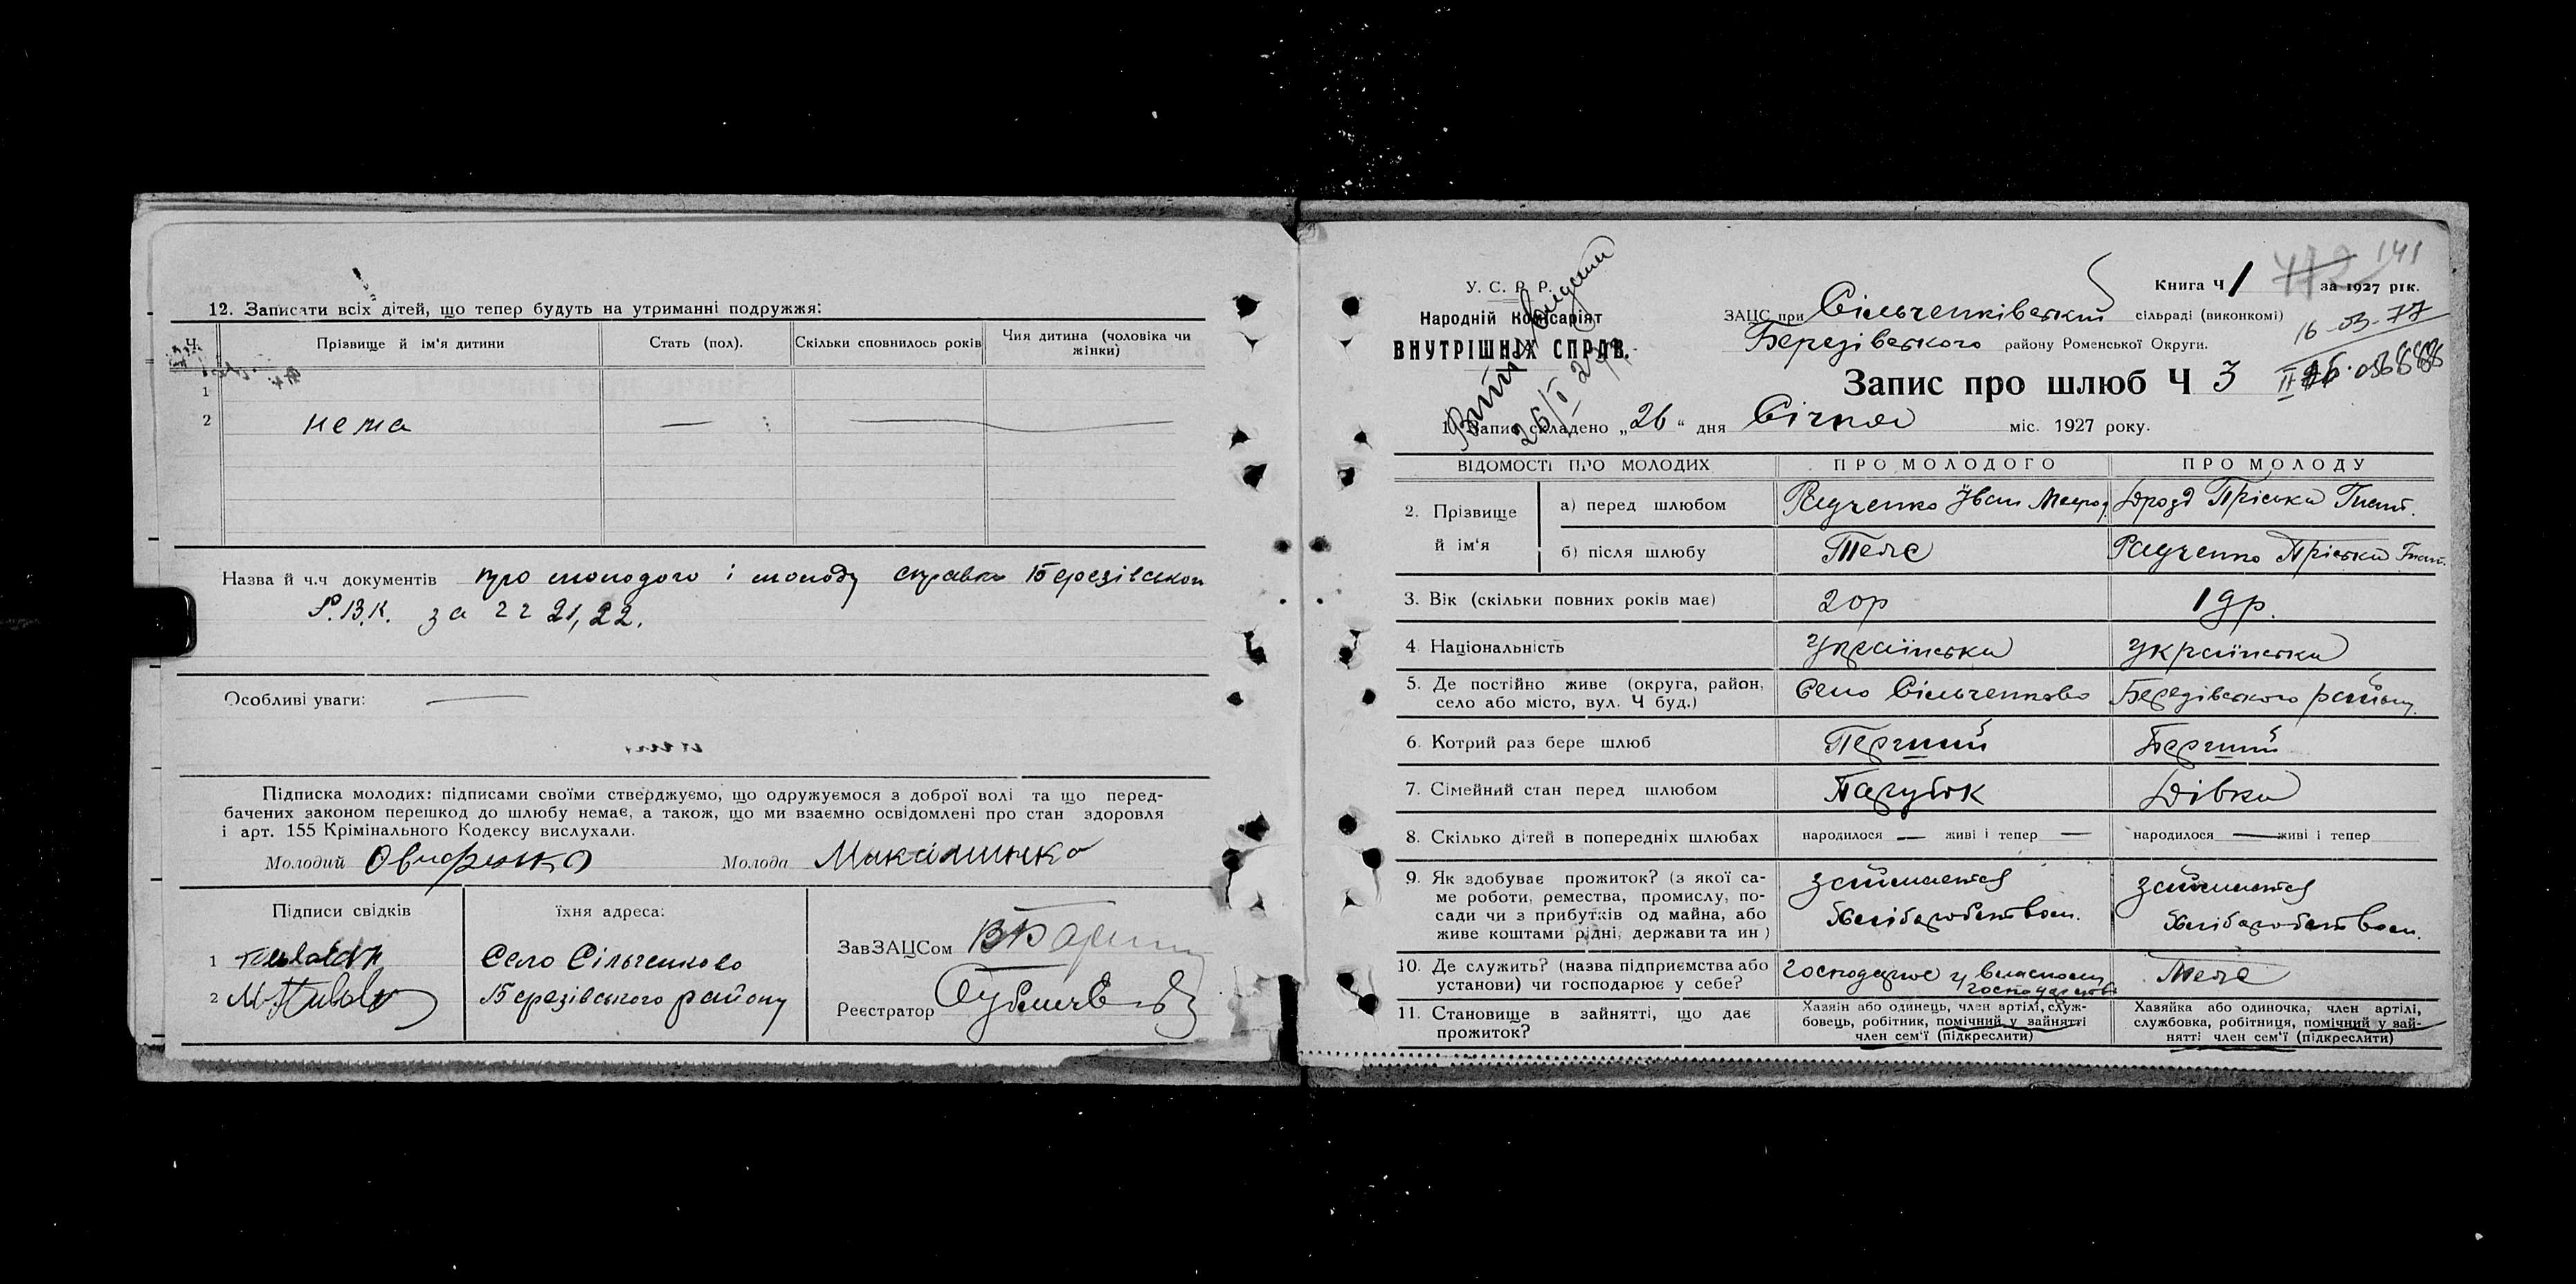 12. Записати всіх дітей, що тепер будуть на утриманні подружжя:
Ч. Прізвище й ім'я дитини Стать (пол). Скільки сповнилось років Чия дитина (чоловіка чи жінки)
1
2 нема — —
Назва й ч.ч документів про молодого і молоду справка Березівськой
Р.В.К. за чч 21, 22.
Особливі уваги: —
Підписка молодих: підписами своїми стверджуємо, що одружуємося з доброї волі та що перед-
бачених законом перешкод до шлюбу немає, а також, що ми взаємно освідомлені про стан здоровля
і арт. 155 Крімінального Кодексу вислухали.
Молодий Молода
Підписи свідків їхня адреса:
ЗавЗАЦСом
1 Село Сільченково
2 Березівського району
Реєстратор
У. С. Р. Р.
Народній Комісаріят
ВНУТРІШНІХ СПРАВ.
141
Книга Ч 1 за 1927 рік.
ЗАЦС при Сільченківський сільраді (виконкомі)
Березівського району Роменської Округи.
16-03-77
Запис про шлюб Ч 3
1. Запис складено „26“ дня Січня міс. 1927 року.
ВІДОМОСТІ ПРО МОЛОДИХ ПРО МОЛОДОГО ПРО МОЛОДУ
2. Прізвище й ім'я
а) перед шлюбом Радченко Іван Дрозд Пріська Гнат.
б) після шлюбу Теже Радченко Пріська Гнат.
3. Вік (скільки повних років має) 20р 19р.
4 Національність Українська Українська
5. Де постійно живе (округа, район, село або місто, вул. Ч буд.) Село Сільченково Березівського району.
6. Котрий раз бере шлюб Перший Перший
7. Сімейний стан перед шлюбом Парубок Дівка
8. Скілько дітей в попередніх шлюбах народилося — живі і тепер — народилося — живі і тепер
9. Як здобуває прожиток? (з якої са-
ме роботи, ремества, промислу, по-
сади чи з прибутків од майна, або
живе коштами рідні, держави та ин)
займается хліборобством.
займается хліборобством.
10. Де служить? (назва підприємства або
установи) чи господарює у себе?
господарює у власному господарстві
Теже
11. Становище в зайнятті, що дає
прожиток?
Хазяін або одинець, член артілі, служ-
бовець, робітник, помічний у зайнятті
член сем'ї (підкреслити)
Хазяйка або одиночка, член артілі,
службовка, робітниця, помічний у зай-
нятті член сем'ї (підкреслити)